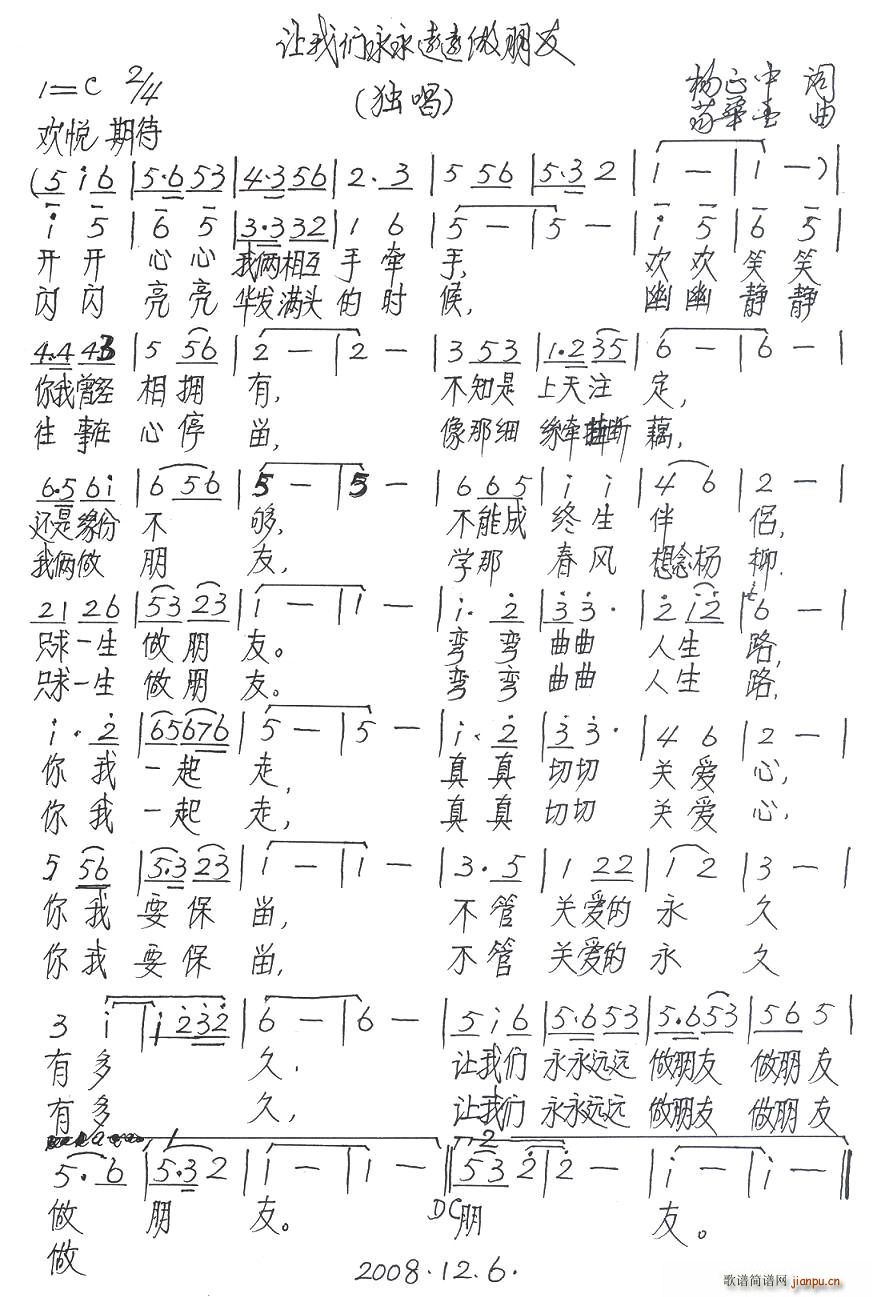 让我们永永远远做朋友
(独唱)
1=C 2/4
杨正中 词
曲
欢悦 期待
(5 i 6 | 5·6 53 | 4·3 56 | 2·3 | 5 56 | 5·3 2 | 1 — | 1 —)|
i 5 | 6 5 | 3·3 32 | 1 6 | 5 — | 5 — | i 5 | 6 5
开开 心心 我俩相互 手牵 手, 欢欢 笑笑
闪闪 亮亮 华发满头 的时 候, 幽幽 静静
4·4 43 | 5 56 | 2 — | 2 — | 3 53 | 1·2 35 | 6 — | 6 — |
你我曾经 相拥 有, 不知是 上天注 定,
往事在 心停 留, 像那细 缘牵 断 藕,
6·5 6i | 6 56 | 5 — | 5 — | 6 65 | i i | 4 6 | 2 — |
还是缘份 不 够, 不能成 终生 伴 侣,
我俩做 朋 友, 学那 春风 想念杨 柳.
21 26 | 53 23 | 1 — | 1 — | i· 2 | 3 3· | 2 i2 | 6 — |
只求一生 做朋 友。 弯弯 曲曲 人生 路,
只求一生 做朋 友。 弯弯 曲曲 人生 路,
i· 2 | 65 676 | 5 — | 5 — | i· 2 | 3 3· | 4 6 | 2 — |
你我 一起 走, 真真 切切 关爱 心,
你我 一起 走, 真真 切切 关爱 心,
5 56 | 5·3 23 | 1 — | 1 — | 3·5 | 1 22 | 1 2 | 3 — |
你我 要保 留, 不管 关爱的 永 久
你我 要保 留, 不管 关爱的 永 久
3 i | i 232 | 6 — | 6 — | 5 i 6 | 5·6 53 | 5·6 53 | 56 5 |
有多 久. 让我们 永永远远 做朋友 做朋友
有多 久, 让我们 永永远远 做朋友 做朋友
1 2
5·6 | 5·3 2 | 1 — | 1 — || 53 2 | 2 — | i — | i — ||
做 朋 友。 DC 朋 友。
做
2008.12.6.
歌谱简谱网 jianpu.cn